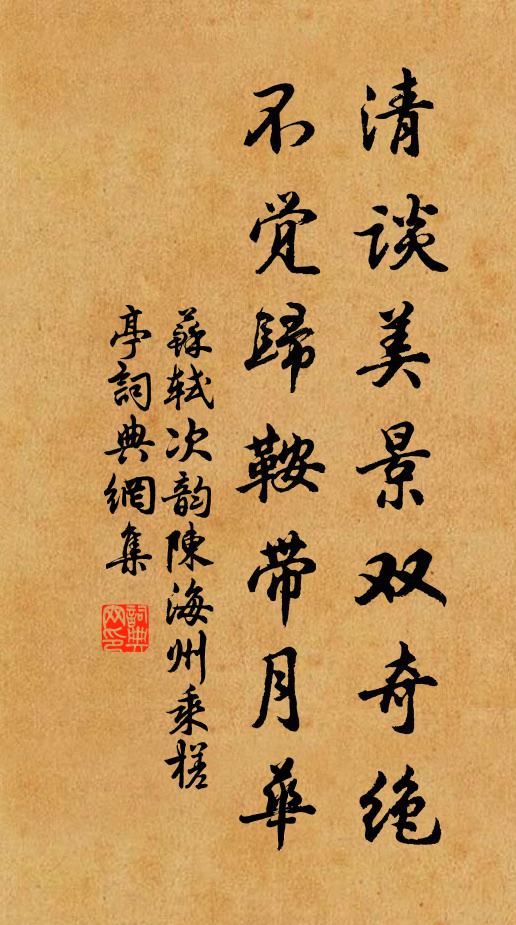 清談美景双奇绝
不覚歸鞍带月華
蘇軾次韵陳海州乘槎
亭詞典網集
詞典
网印